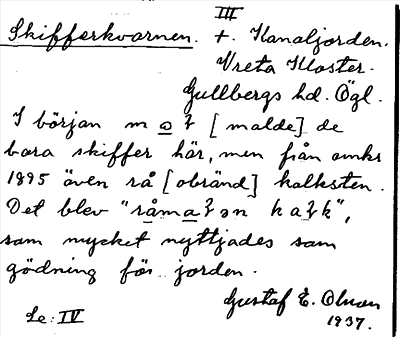 III
Skifferkvarnen. t. Kanaljorden.
Vreta Kloster.
Gullbergs hd. Ögl.
I början m [malde] de
bara skiffer här, men från omkr
1895 även rå [obränd] kalksten.
Det blev
som mycket nyttjades som
gödning för jorden.
Gustaf E. Olsson
1937.
Se: IV